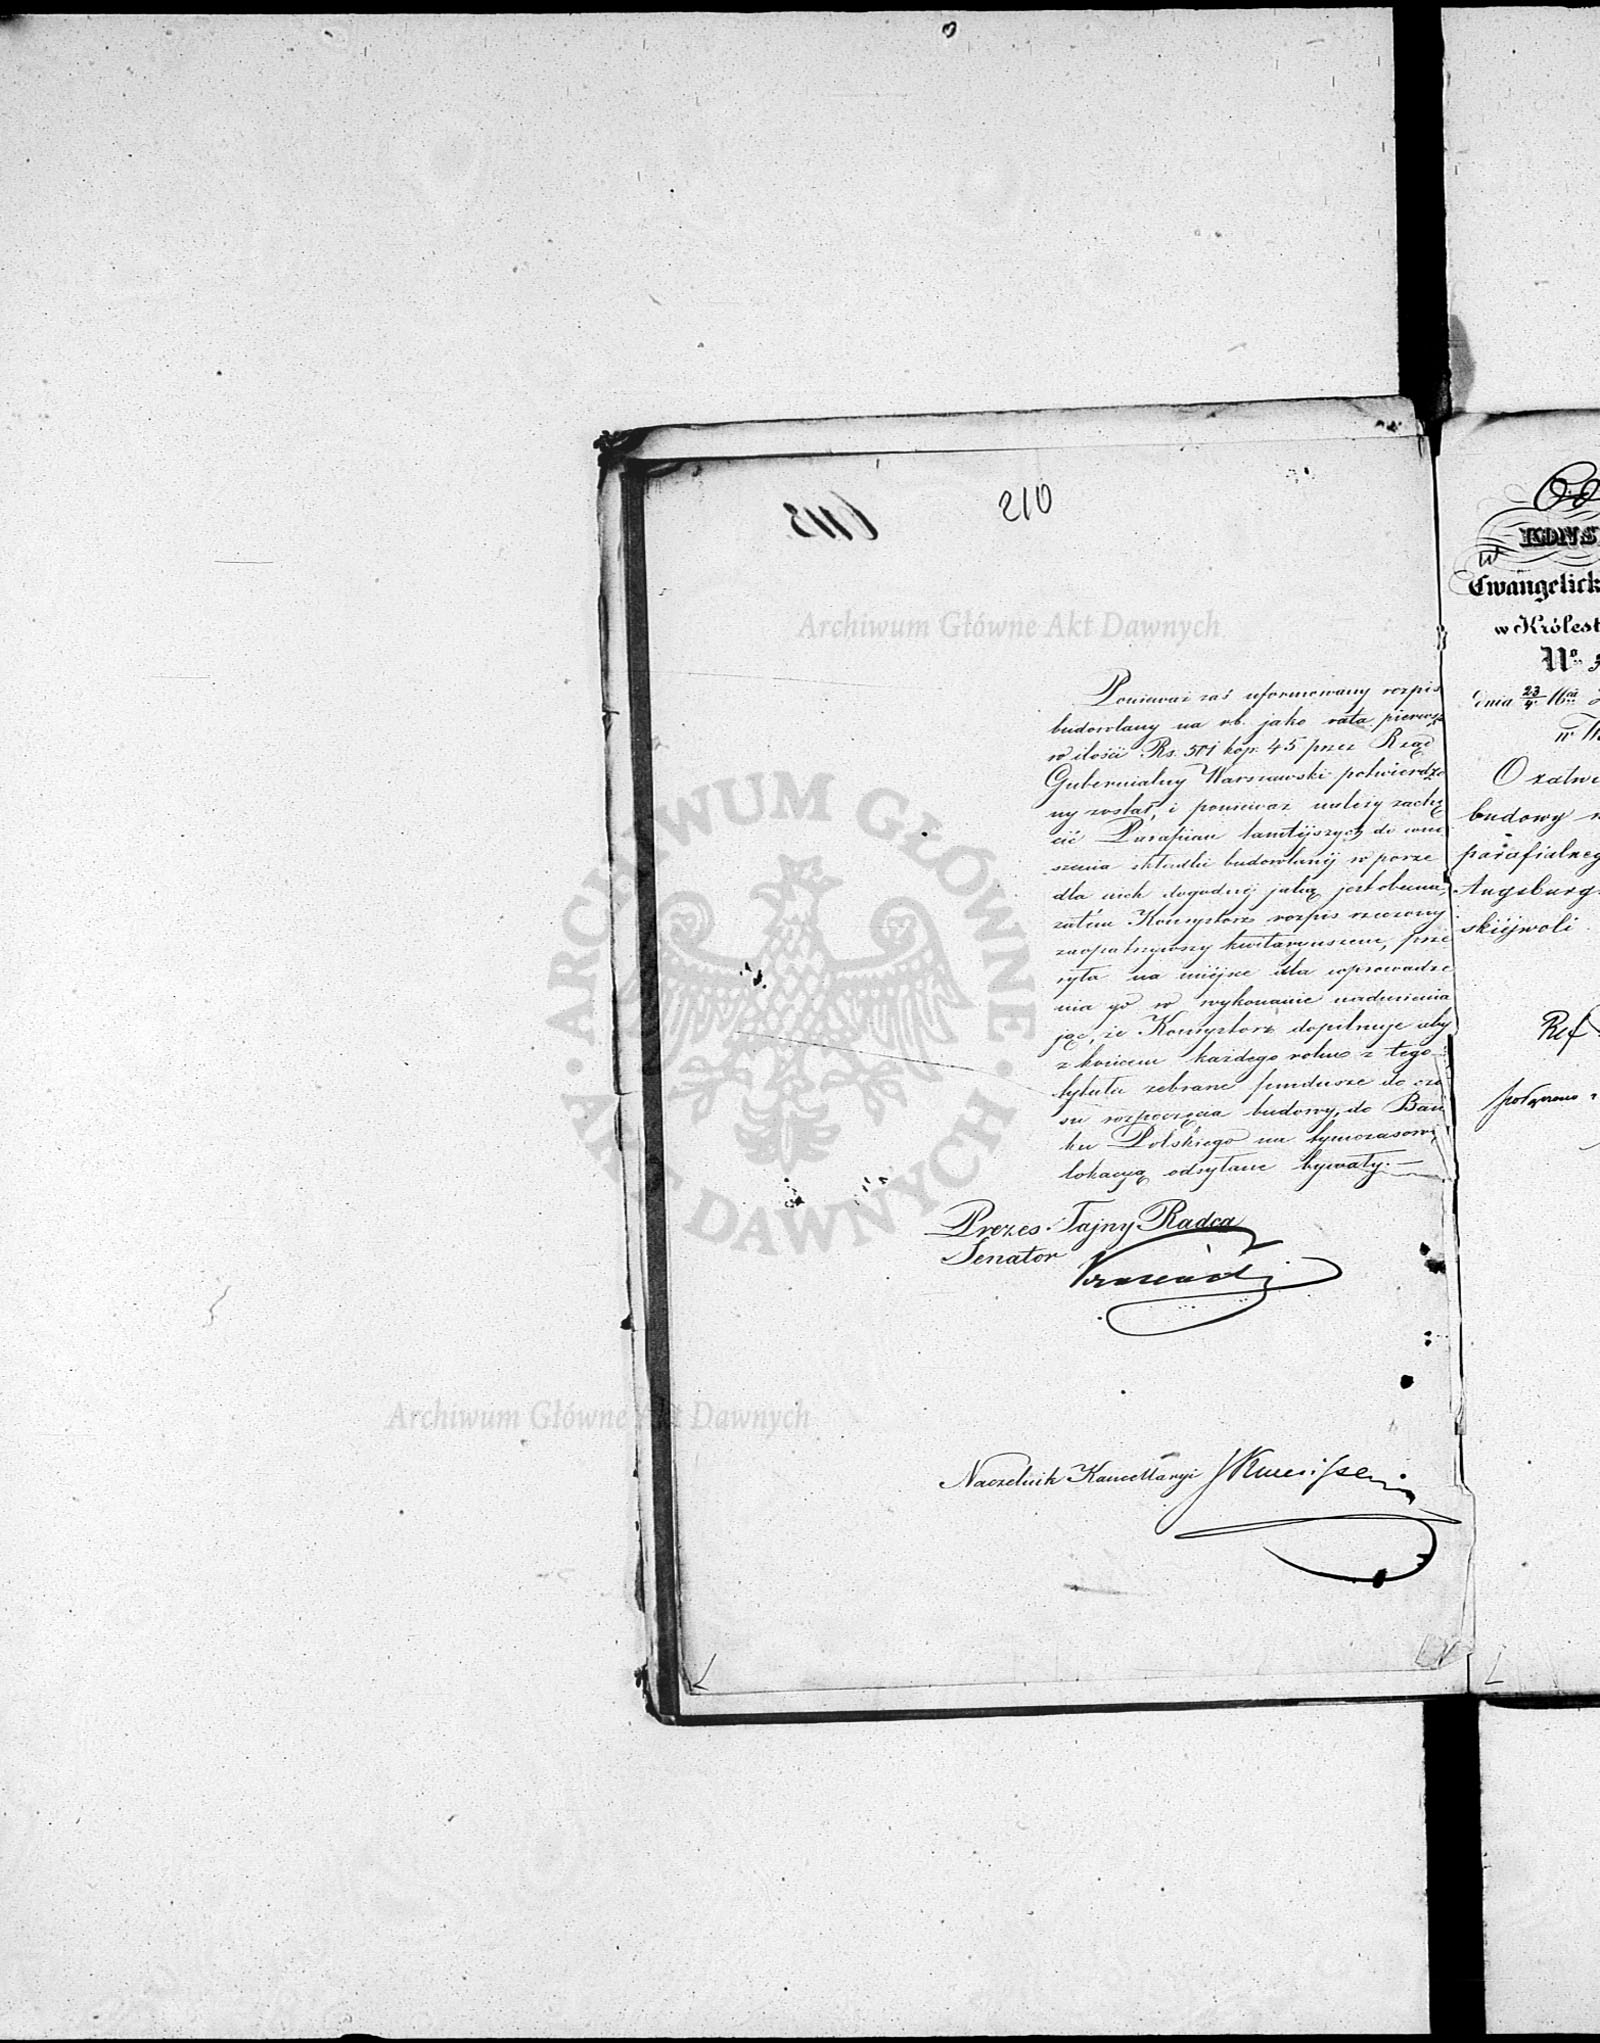 210
Archiwum Główne Akt Dawnych
Ponieważ zaś uformowany rozpis
budowlany na r.b. jako rata pierwsz
w ilości Rs. 571 kop. 45 przez Rząd
Gubernialny Warszawski potwierdzo
ny został, i ponieważ należy zachę
cić Parafian tamtejszych do wno
szenia składki budowlanéj w porze
dla nich dogodnéj jaką jest obecna,
zatém Konsystorz rozpis rzeczony
zaopatrzywszy kwitaryuszem, prze
syła na miejsce dla wprowadze
nia go w wykonanie nadmienia
jąc, że Konsystorz dopilnuje aby
z końcem każdego roku z tego
tytułu zebrane fundusze do cza
su rozpoczęcia budowy, do Ban
ku Polskiego na tymczasową
lokacyą odsyłane bywały.—
Prezes Tajny Radca
Senator
Naczelnik Kancellaryi
ARCHIWUM GŁÓWNE AKT DAWNYCH
Archiwum Główne Akt Dawnych
Od
KONS
w
Ewangelick
w Królest
No
dnia 23/4
O zatwi
budowy n
parafialneg
Augsburg
skiéjwoli
Ref